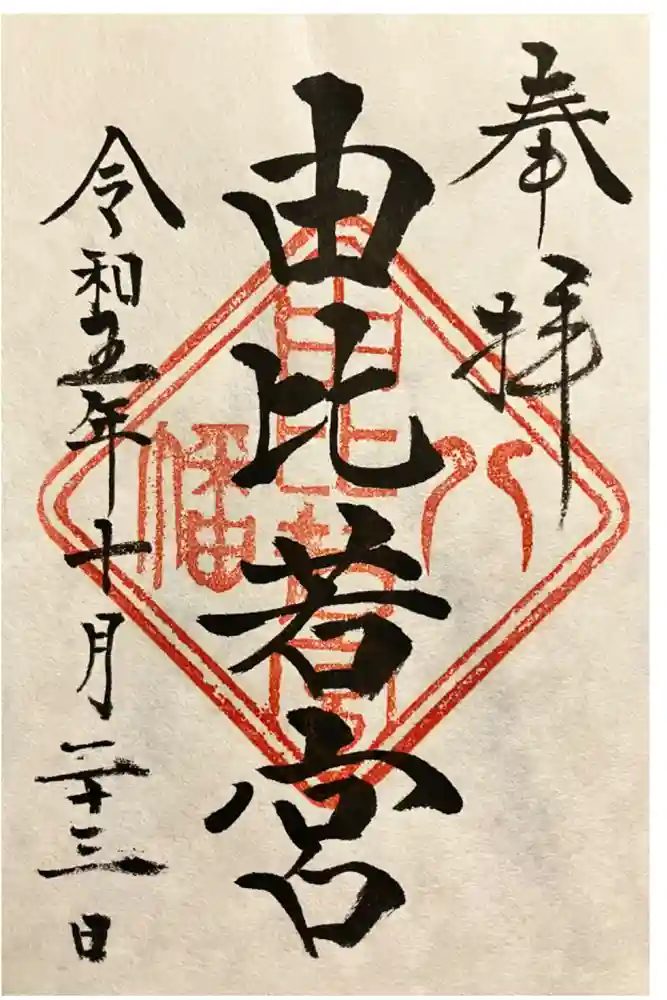 奉拝
八幡
由比若宮
令和五年十月二十三日